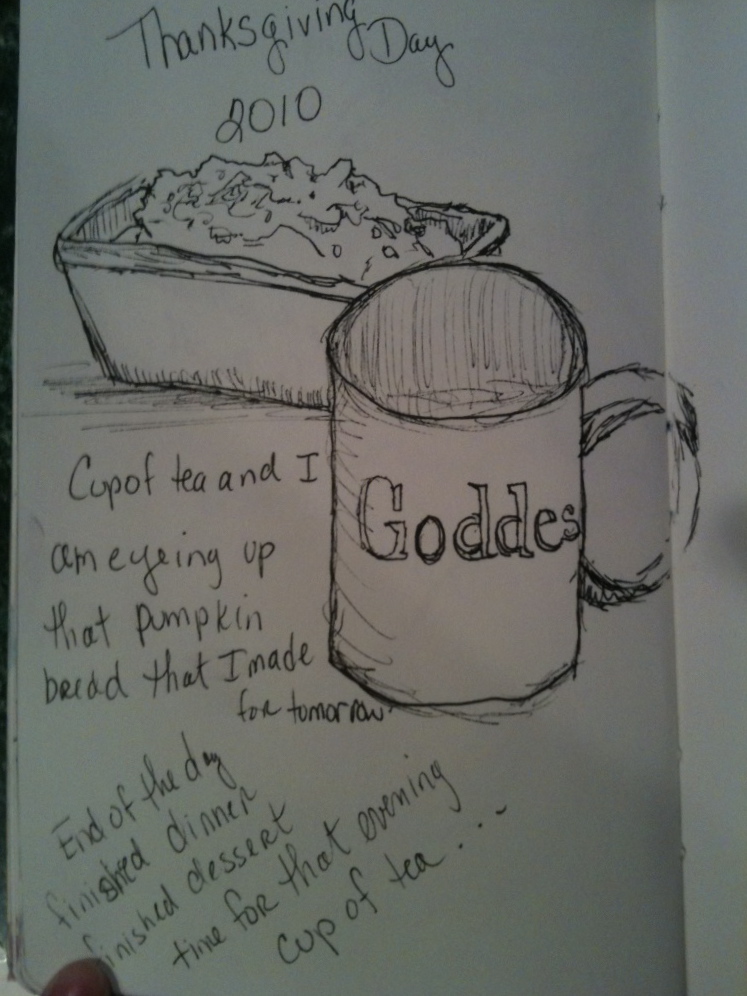 Thanksgiving Day
2010
Cup of tea and I
am eyeing up
that pumpkin
bread that I made
for tomorrow.
Goddes
End of the day
finished dinner
finished dessert
time for that evening
cup of tea...